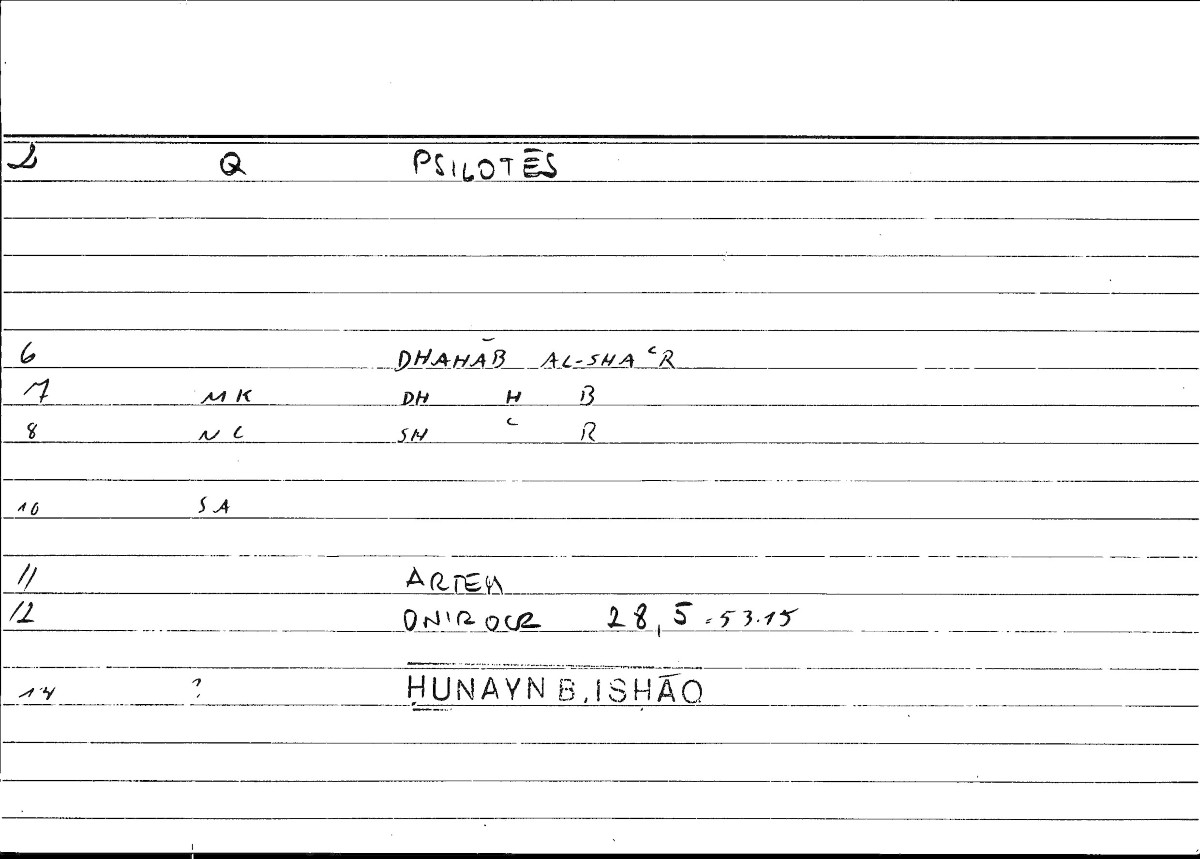 2 Q PSILOTĒS
6 DHAHĀB AL-SHAʿR
7 MK DH H B
8 NC SH ʿ R
10 SA
11 ARTEM
12 ONIROCR 28,5 = 53.15
14 ? ḤUNAYN B. ISḤĀQ